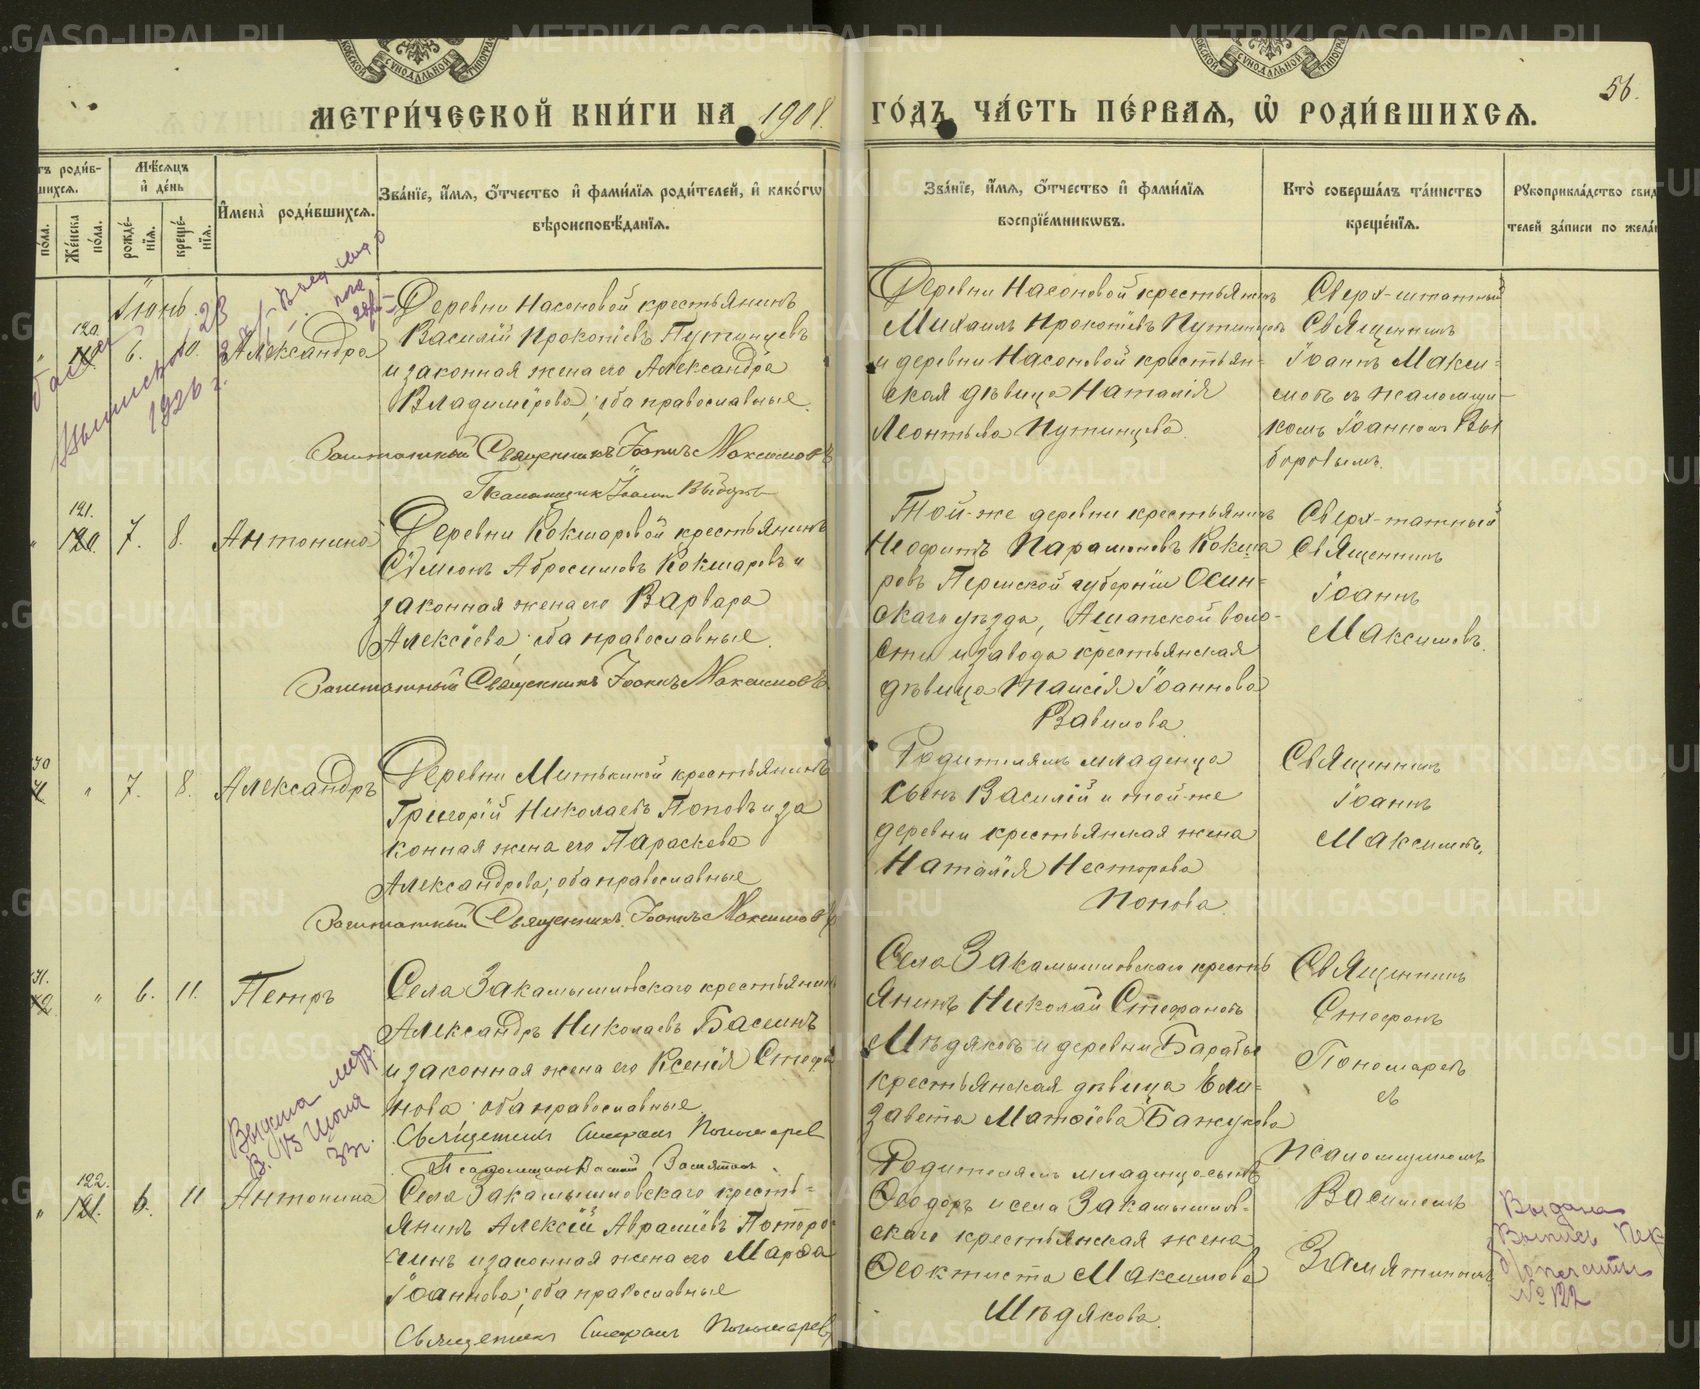 МЕТРИ́ЧЕСКОЙ КНИ́ГИ НА 1908.
ГО́ДЪ, ЧА́СТЬ ПЕ́РВАЯ, Ѡ҆ РОДИ́ВШИХСЯ.
56.
Же́нска по́ла.
Мѣ́сяцъ и҆ де́нь
рожде́нїя.
креще́нїя.
И҆мена̀ роди́вшихся.
Зва́нїе, и҆́мя, ѻ҆́тчество и҆ фами́лїя роди́телей, и҆ како́гѡ
вѣроисповѣ́данїя.
Зва́нїе, и҆́мя, ѻ҆́тчество и҆ фами́лїя
воспрїе́мникѡвъ.
Кто̀ соверша́лъ та́инство
креще́нїя.
Рꙋкоприкла́дство свид
телей за́писи по жела́
Іюнь.
120.
6.
10.
Александра
Деревни Насоновой крестьянинъ
Василій Прокопіевъ Путинцевъ
и законная жена его Александра
Владимірова; оба православные.
Заштатный Священникъ Іоаннъ Максимовъ
Псаломщик Іоанн Выборов
Деревни Насоновой крестьянинъ
Михаилъ Прокопіевъ Путинцевъ
и деревни Насоновой крестьян-
ская дѣвица Наталія
Леонтьева Путинцева.
Сверх-штатный
Священникъ
Іоаннъ Макси-
мовъ съ псаломщи-
комъ Іоанномъ Вы
боровымъ.
1926 г.
121.
120.
7.
8.
Антонина
Деревни Кокшаровой крестьянинъ
Сѵмеонъ Абросимовъ Кокшаровъ и
законная жена его Варвара
Алексіева; оба православные.
Заштатный Священникъ Іоаннъ Максимовъ
Той-же деревни крестьянинъ
Неофитъ Парамоновъ Кокша
ровъ Пермской губерніи Осин-
скаго уѣзда, Ашапской воло-
сти и завода крестьянская
дѣвица Таисія Іоаннова
Вавилова.
Сверх-штатный
Священникъ
Іоаннъ
Максимовъ.
7.
8.
Александръ
Деревни Митькиной крестьянинъ
Григорій Николаевъ Поповъ и за
конная жена его Параскева
Александрова; оба православные
Заштатный Священникъ Іоаннъ Максимовъ
Родителямъ младенца
сынъ Василій и той-же
деревни крестьянская жена
Наталія Несторова
Попова.
Священникъ
Іоаннъ
Максимовъ.
6.
11.
Петръ
Села Закамышловскаго крестьянинъ
Александръ Николаевъ Басминъ
и законная жена его Ксенія Стефа
нова; оба православные.
Священник Стефан Пономарев
Псаломщик Василій Замятин
Села Закамышловскаго кресть
янинъ Николай Стефановъ
Мѣдяковъ и деревни Барабы
крестьянская дѣвица Ели-
завета Матѳіева Бажукова
Священникъ
Стефанъ
Пономаревъ
съ
псаломщикомъ
Василіемъ
Замятинымъ
122.
121.
6.
11
Антонина
Села Закамышловскаго кресть-
янинъ Алексій Авраміевъ Поторо
чинъ и законная жена его Марѳа
Іоаннова; оба православные
Священник Стефан Пономарев
Родителямъ младенца сынъ
Ѳеодоръ и села Закамышлов-
скаго крестьянская жена
Ѳеоктиста Максимова
Мѣдякова.
Выдана
Выпись
№ 122
METRIKI.GASO-URAL.RU